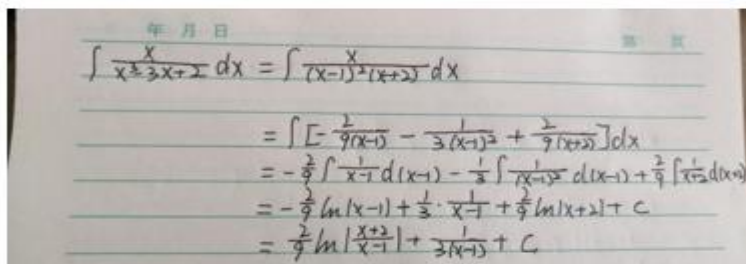 年 月 日
第 页
∫ x/(x³-3x+2) dx = ∫ x/((x-1)²(x+2)) dx
= ∫ [-2/(9(x-1)) - 1/(3(x-1)²) + 2/(9(x+2))] dx
= -2/9 ∫ 1/(x-1) d(x-1) - 1/3 ∫ 1/(x-1)² d(x-1) + 2/9 ∫ 1/(x+2) d(x+2)
= -2/9 ln|x-1| + 1/3 · 1/(x-1) + 2/9 ln|x+2| + C
= 2/9 ln|(x+2)/(x-1)| + 1/(3(x-1)) + C